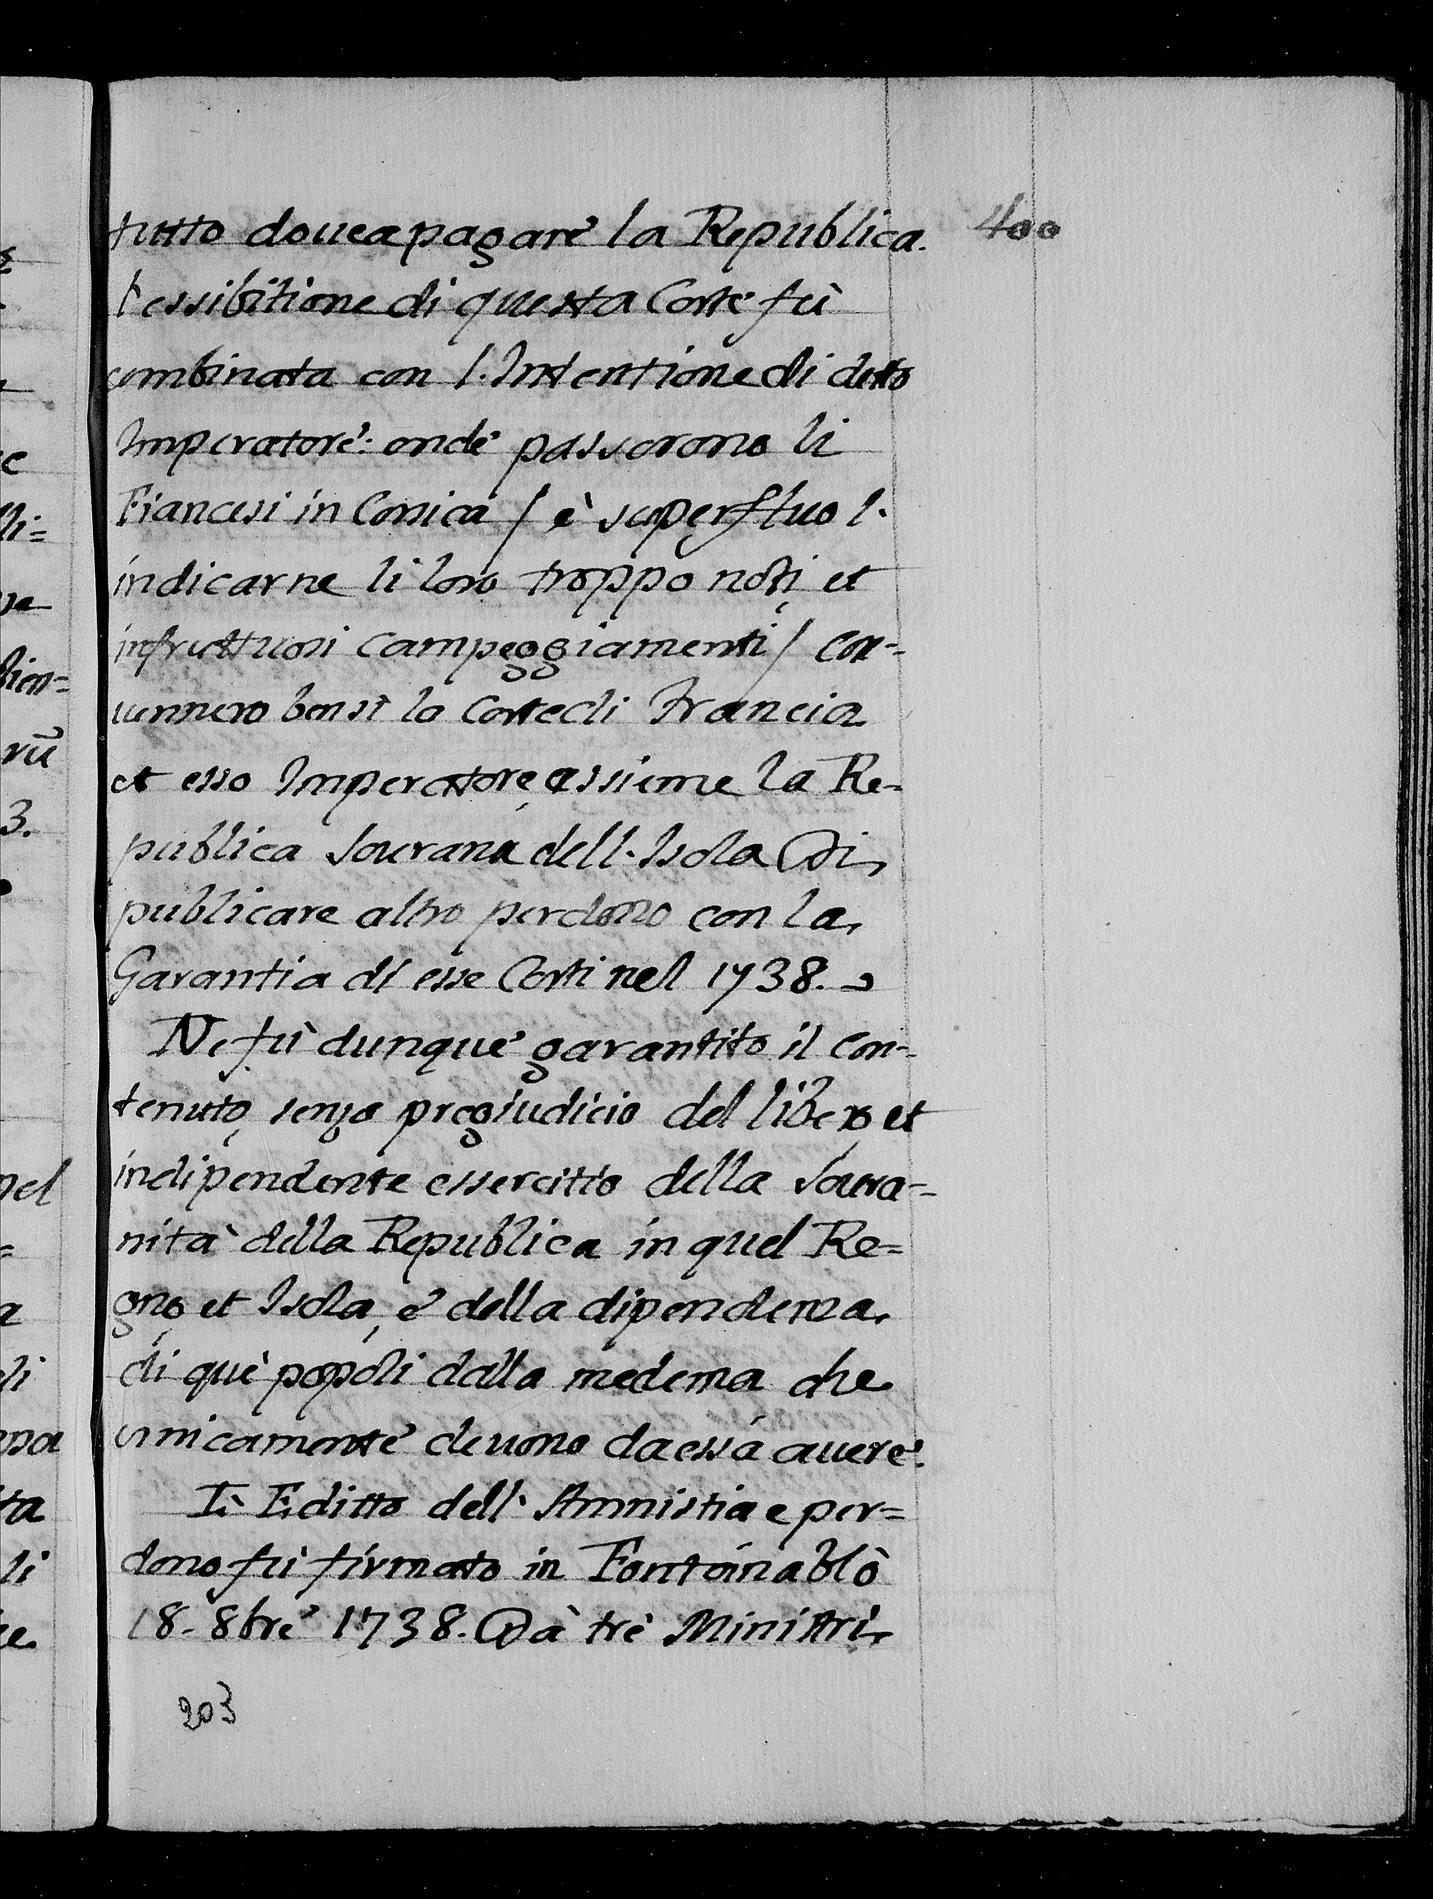 tutto douea pagare la Republica. 400
l'essibitione di questa Corte fù
combinata con l'Intentione di detto
Imperatore: onde passorono li
Francesi in Corsica / è superfluo l'
indicarne li loro troppo noti, et
infruttuosi campeggiamenti / con-
uennero bensì la Corte di Francia
et esso Imperatore, assieme la Re-
publica Sourana dell'Isola Di
publicare altro perdono con la
Garantia di esse Corti nel 1738.
Ne fù dunque garantito il con-
tenuto, senza pregiudicio del libero, et
indipendente essercitio della Soura-
nità della Republica in quel Re=
gno, et Isola, e della dipendenza
di què popoli dalla medema che
unicamente deuono da essa auere.
L'Editto dell'Amnistia e per=
dono fù firmato in Fontainablò
18. 8bre 1738. Dà trè Ministri
203